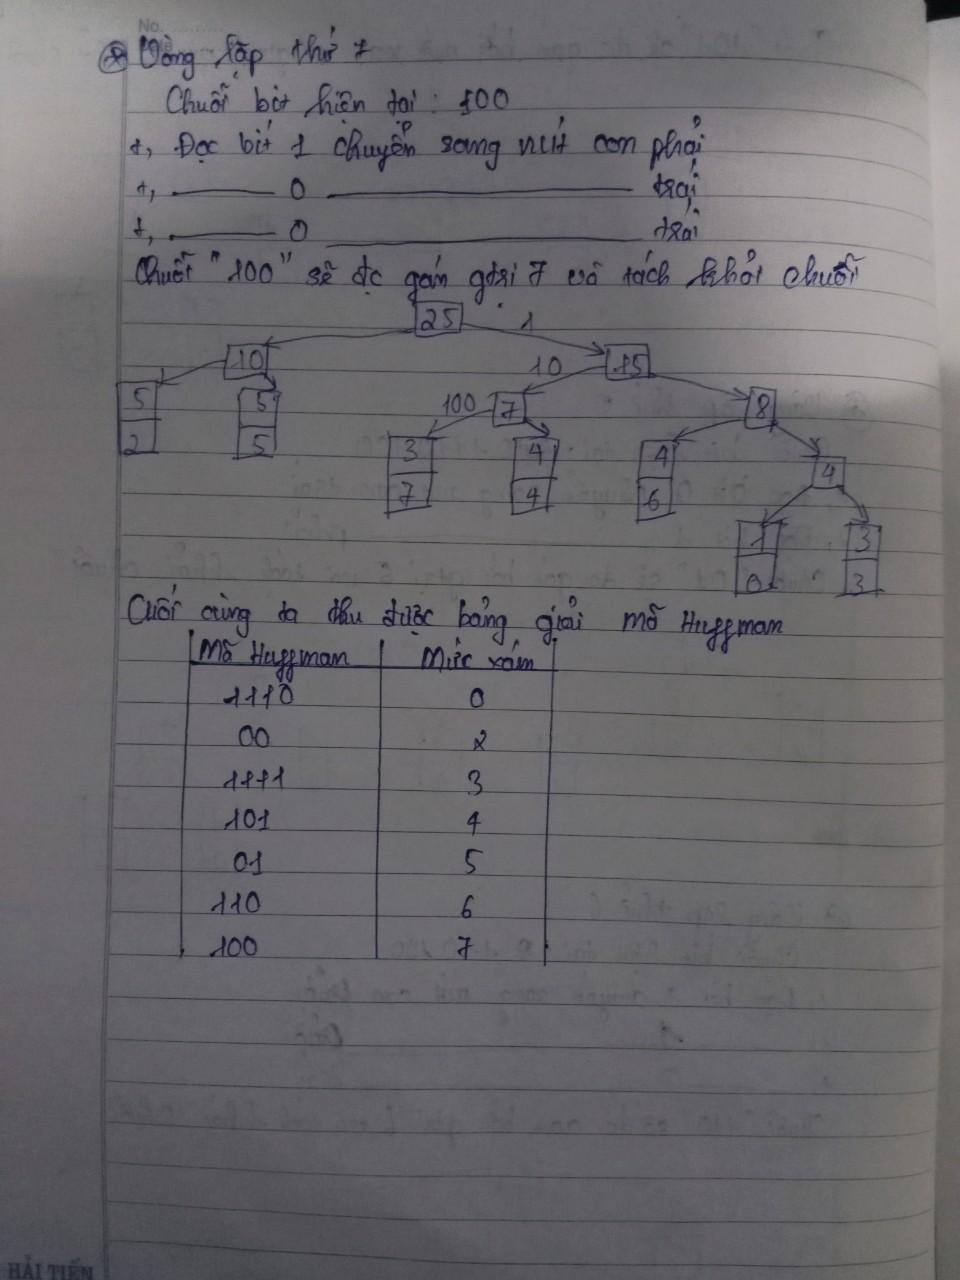 No.
⊛ Vòng lặp thứ 7
Chuỗi bit hiện tại : 100
+, Đọc bit 1 chuyển sang nút con phải
+, ——— 0 ——————— trái
+, ——— 0 ——————— trái
Chuỗi "100" sẽ đc gán gtrị 7 và tách khỏi chuỗi
25 1
10 10 15
5 5 100 7 8
2 5 3 4 4 4
7 4 6
1 3
0 3
Cuối cùng ta thu được bảng giải mã Huffman
Mã Huffman Mức xám
1110 0
00 2
1111 3
101 4
01 5
110 6
100 7
HẢI TIẾN